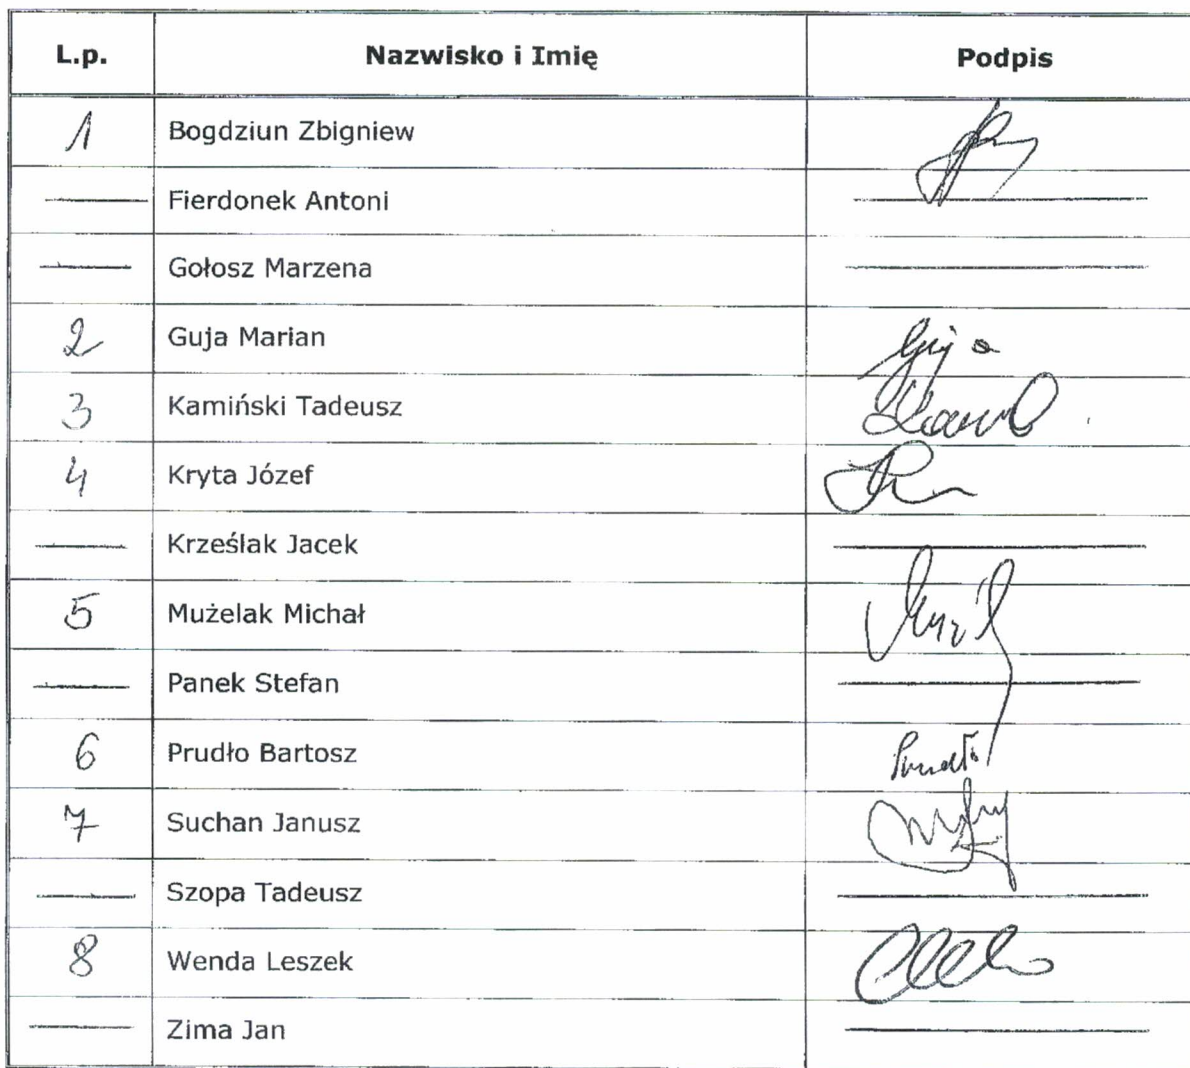 L.p. Nazwisko i Imię Podpis
1 Bogdziun Zbigniew
Fierdonek Antoni
Gołosz Marzena
2 Guja Marian Guja
3 Kamiński Tadeusz
4 Kryta Józef
Krześlak Jacek
5 Mużelak Michał
Panek Stefan
6 Prudło Bartosz Prudło
7 Suchan Janusz
Szopa Tadeusz
8 Wenda Leszek
Zima Jan